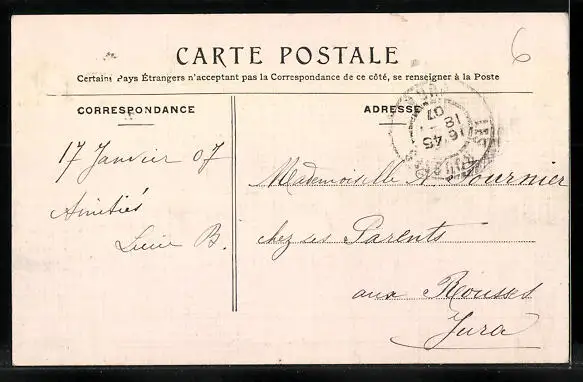 6
CARTE POSTALE
Certains Pays Étrangers n'acceptant pas la Correspondance de ce côté, se renseigner à la Poste
CORRESPONDANCE
ADRESSE
17 Janvier 07
Amitiés
Lucie B.
LES
16 45
18
07
Mademoiselle A. Fournier
chez ses Parents
aux Rousses
Jura